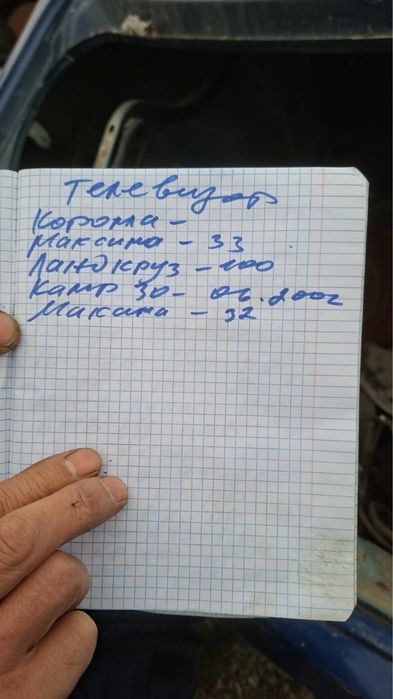 Телевизор
Королла -
Максима - 33
Ландкруз - 100
Камр 30 - 06. 2002
Макима - 32